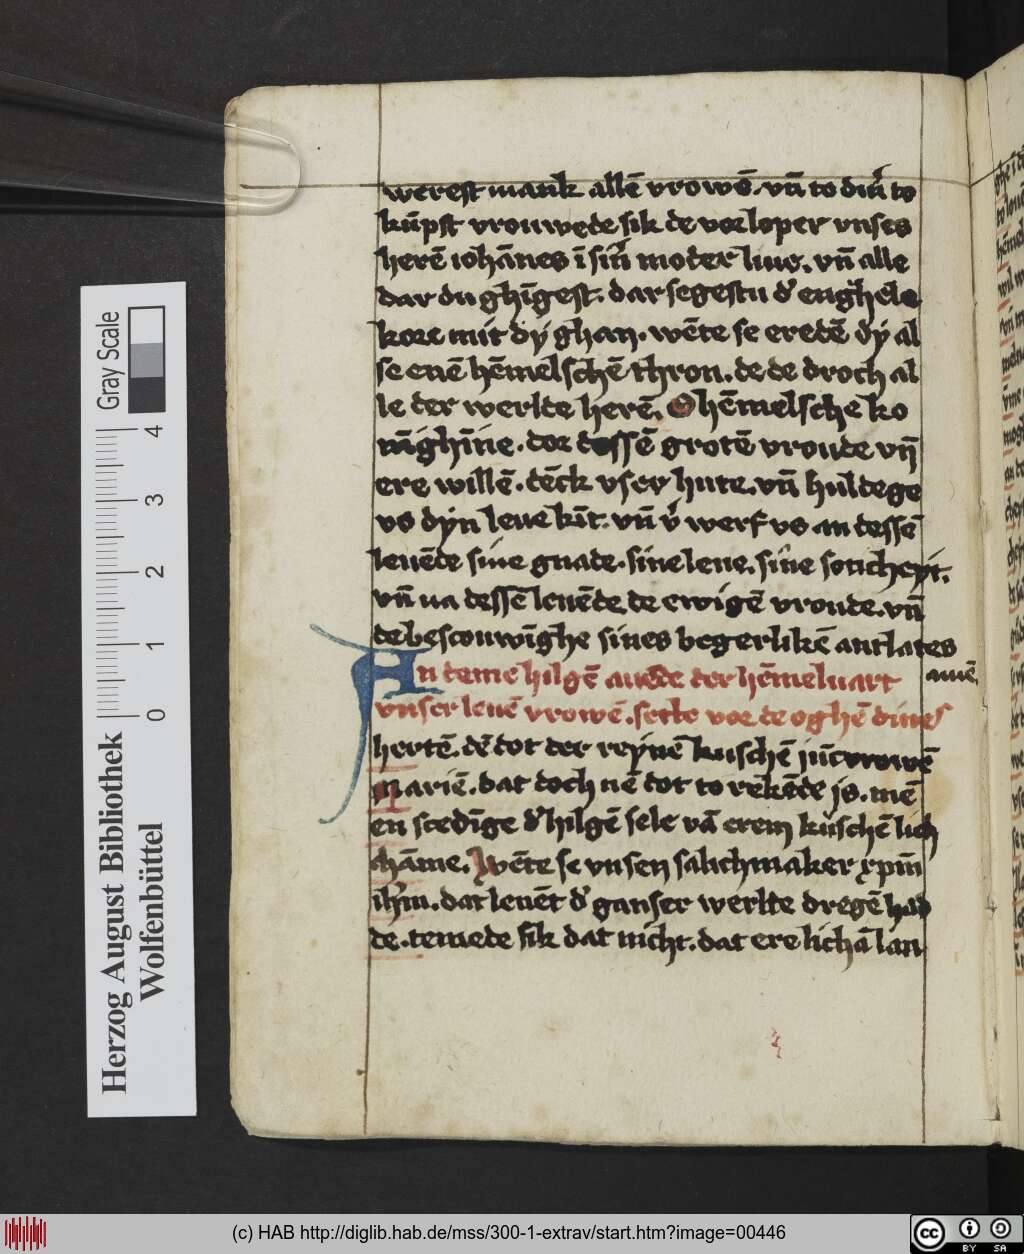 werest mank allē vrowē. vn̄ to din̄ to
kūpst vrouwede sik de vorloper vnses
herē iohānes ī sin̄ moder liue. vn̄ alle
dar du ghīgest. dar segestu d' enghele
kore mit dy ghan. wēte se eredē dy al
se enē hēmelschē thron. de de droch al
le der werlde herē. O hēmelsche ko
nīghīne. dor dessē grotē vroude vn̄
ere willē. dēck vser hute. vn̄ huldege
vs dyn leue kīt. vn̄ v' werf vs an dessē
leuēde sine gnade. sine leue. sine
vn̄ na dessē leuēde de ewigē vroude. vn̄
de bescouwīghe sines begerlikē antlates
An deme hilgē auede der hēmeluart
amē
vnser leuē vrowē. sette vor de oghē dines
hertē. dē dot der reynē kuschē iūcvrowē
marië. dat doch nē dot to rekēde is. mē
en scedīge d' hilgē sele vā erem kuschē lich
chāme. Wēte se vnsen salichmaker xp̄m
ih'm. dat leuēt d' ganser werlde dregē had
de. temede sik dat nicht. dat ere lichā lan
Herzog August Bibliothek
Wolfenbüttel
0 1 2 3 4
Gray Scale
(c) HAB http://diglib.hab.de/mss/300-1-extrav/start.htm?image=00446
cc BY SA